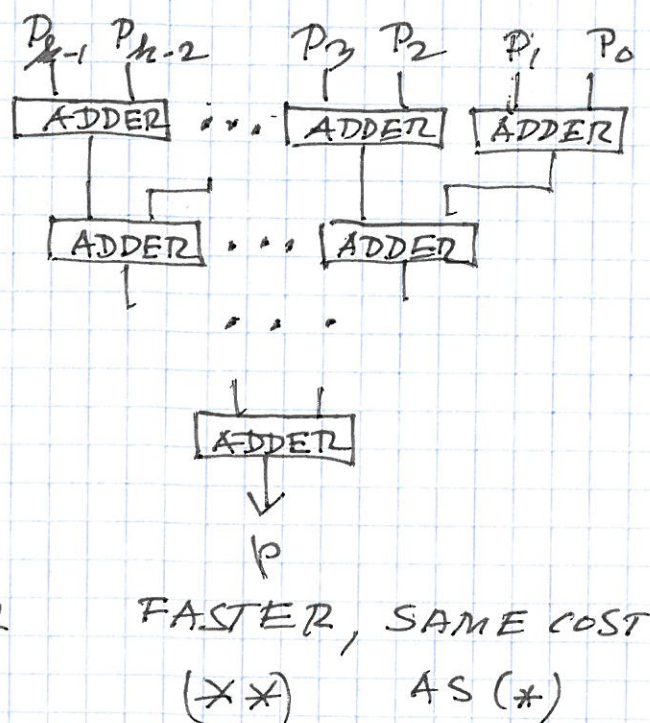 P_{k-1} P_{k-2} P_3 P_2 P_1 P_0
ADDER ... ADDER ADDER
ADDER ... ADDER
...
ADDER
p
FASTER, SAME COST
(**) AS (*)